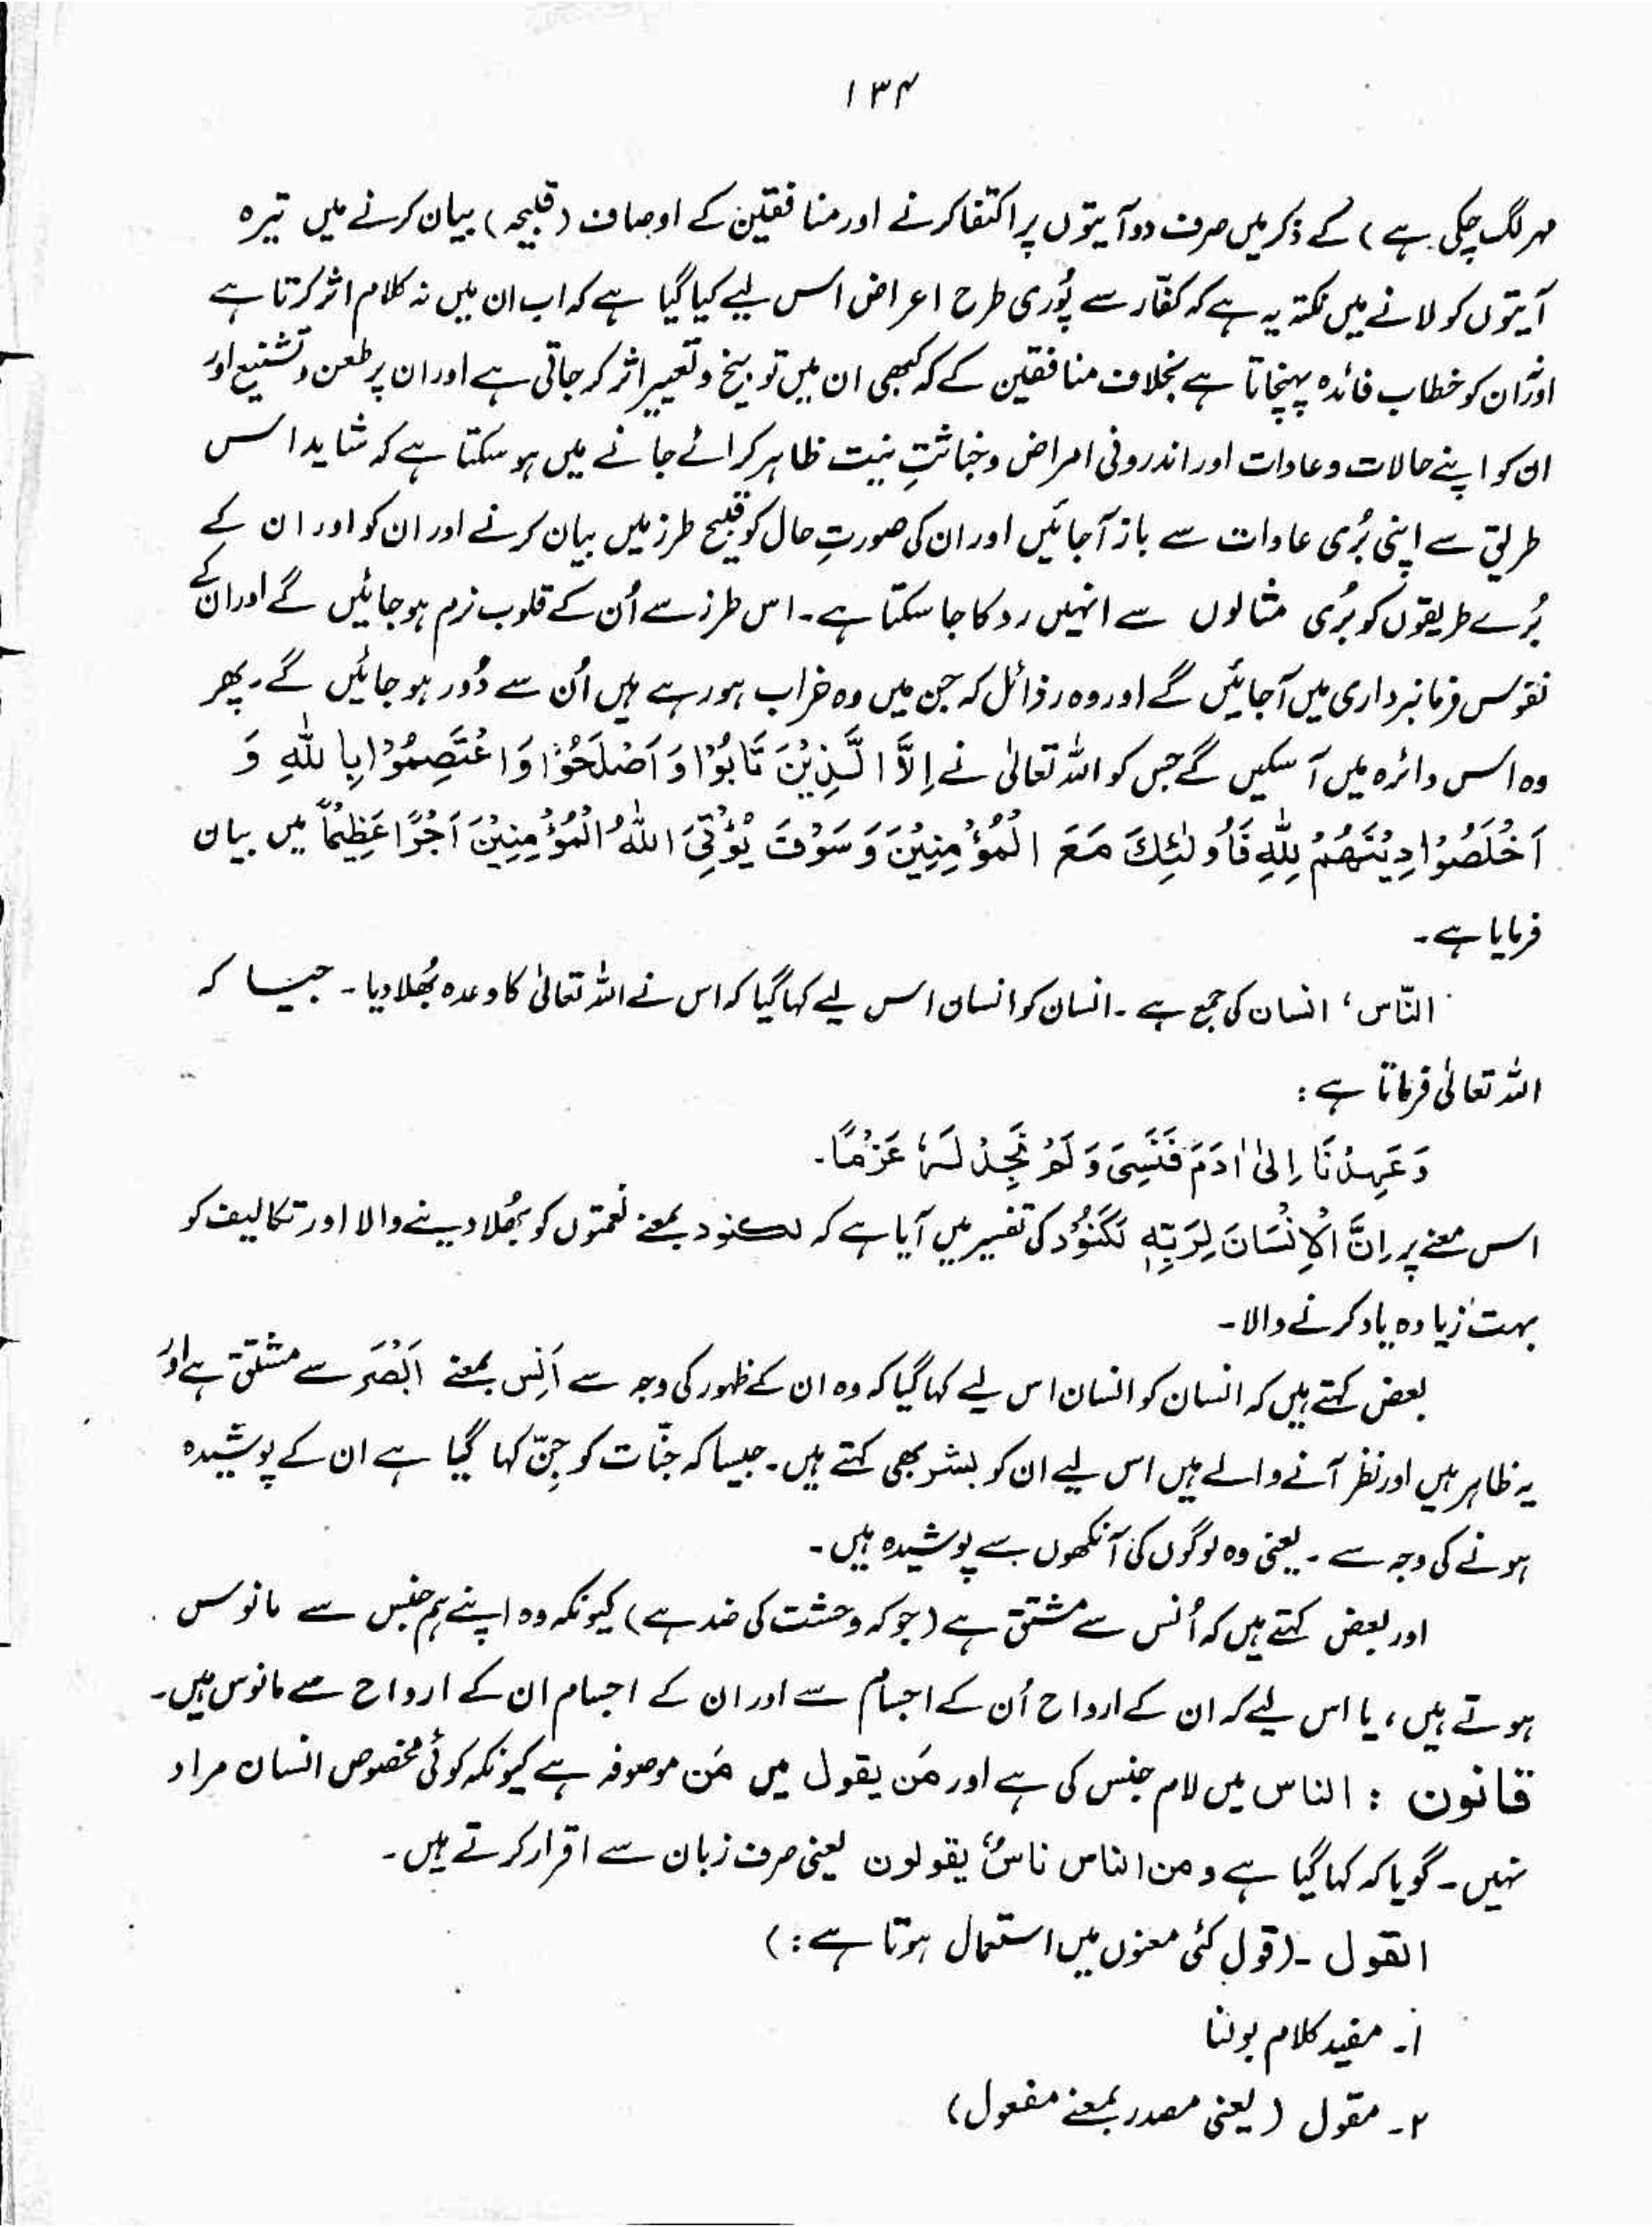 ۱۳۴
مہر لگ چکی ہے) کے ذکر میں صرف دو آیتوں پر اکتفا کرنے اور منافقین کے اوصاف (قبیحہ) بیان کرنے میں تیرہ
آیتوں کو لانے میں نکتہ یہ ہے کہ کفّار سے پُوری طرح اعراض اس لیے کیا گیا ہے کہ اب ان میں نہ کلام اثر کرتا ہے
اور نہ ان کو خطاب فائدہ پہنچاتا ہے بخلاف منافقین کے کہ کبھی ان میں توبیخ و تعییر اثر کر جاتی ہے اور ان پر طعن و تشنیع اور
ان کو اپنے حالات و عادات اور اندرونی امراض و خباثتِ نیت ظاہر کرائے جانے میں ہو سکتا ہے کہ شاید اس
طریق سے اپنی بُری عادات سے باز آجائیں اور ان کی صورتِ حال کو قبیح طرز میں بیان کرنے اور ان کو اور ان کے
بُرے طریقوں کو بُری مثالوں سے انہیں روکا جا سکتا ہے۔ اس طرز سے اُن کے قلوب نرم ہو جائیں گے اور ان کے
نفوس فرمانبرداری میں آجائیں گے اور وہ رذائل کہ جن میں وہ خراب ہو رہے ہیں اُن سے دُور ہو جائیں گے۔ پھر
وہ اس دائرہ میں آ سکیں گے جس کو اللہ تعالیٰ نے اِلَّا الَّذِیْنَ تَابُوْا وَ اَصْلَحُوْا وَاعْتَصِمُوْا بِاللّٰهِ وَ
اَخْلَصُوْا دِیْنَهُمْ لِلّٰهِ فَاُولٰئِكَ مَعَ الْمُؤْمِنِیْنَ وَ سَوْفَ یُؤْتِیَ اللّٰهُ الْمُؤْمِنِیْنَ اَجْرًا عَظِیْمًا میں بیان
فرمایا ہے۔
النّاس، انسان کی جمع ہے۔ انسان کو انسان اس لیے کہا گیا کہ اس نے اللہ تعالیٰ کا وعدہ بُھلا دیا۔ جیسا کہ
اللہ تعالیٰ فرماتا ہے:
وَ عَهِدْنَا اِلٰی اٰدَمَ فَنَسِیَ وَ لَمْ نَجِدْ لَهٗ عَزْمًا۔
اس معنے پر اِنَّ الْاِنْسَانَ لِرَبِّهٖ لَكَنُوْد کی تفسیر میں آیا ہے کہ لکنود بمعنے نعمتوں کو بُھلا دینے والا اور تکالیف کو
بہت زیادہ یاد کرنے والا۔
بعض کہتے ہیں کہ انسان کو انسان اس لیے کہا گیا کہ وہ ان کے ظہور کی وجہ سے اَنِسَ بمعنے اَبْصَرَ سے مشتق ہے اور
یہ ظاہر ہیں اور نظر آنے والے ہیں اس لیے ان کو بشر بھی کہتے ہیں۔ جیسا کہ جنّات کو جِنّ کہا گیا ہے ان کے پوشیدہ
ہونے کی وجہ سے۔ یعنی وہ لوگوں کی آنکھوں سے پوشیدہ ہیں۔
اور بعض کہتے ہیں کہ اُنس سے مشتق ہے (جو کہ وحشت کی ضد ہے) کیونکہ وہ اپنے ہم جنس سے مانوس
ہوتے ہیں، یا اس لیے کہ ان کے ارواح اُن کے اجسام سے اور ان کے اجسام ان کے ارواح سے مانوس ہیں۔
قانون : الناس میں لام جنس کی ہے اور مَن یقول میں مَن موصوفہ ہے کیونکہ کوئی مخصوص انسان مراد
نہیں۔ گویا کہ کہا گیا ہے ومن الناس ناسٌ یقولون یعنی صرف زبان سے اقرار کرتے ہیں۔
القول۔ (قول کئی معنوں میں استعمال ہوتا ہے:)
۱۔ مفید کلام بولنا
۲۔ مقول (یعنی مصدر بمعنے مفعول)